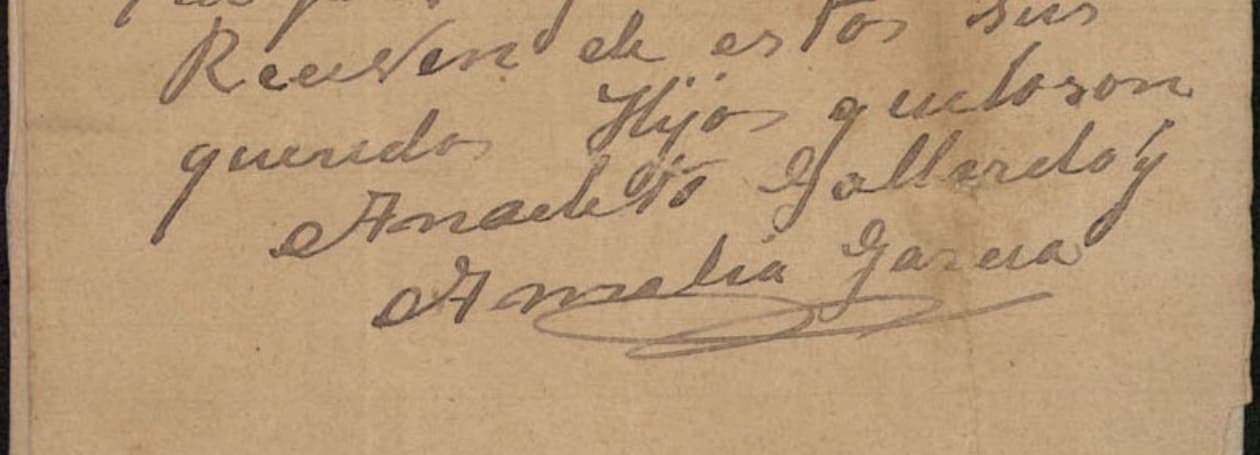 Reciven de estos sus
queridos Hijos que loson
Anacleto Gallardo y
Amelia Garcia